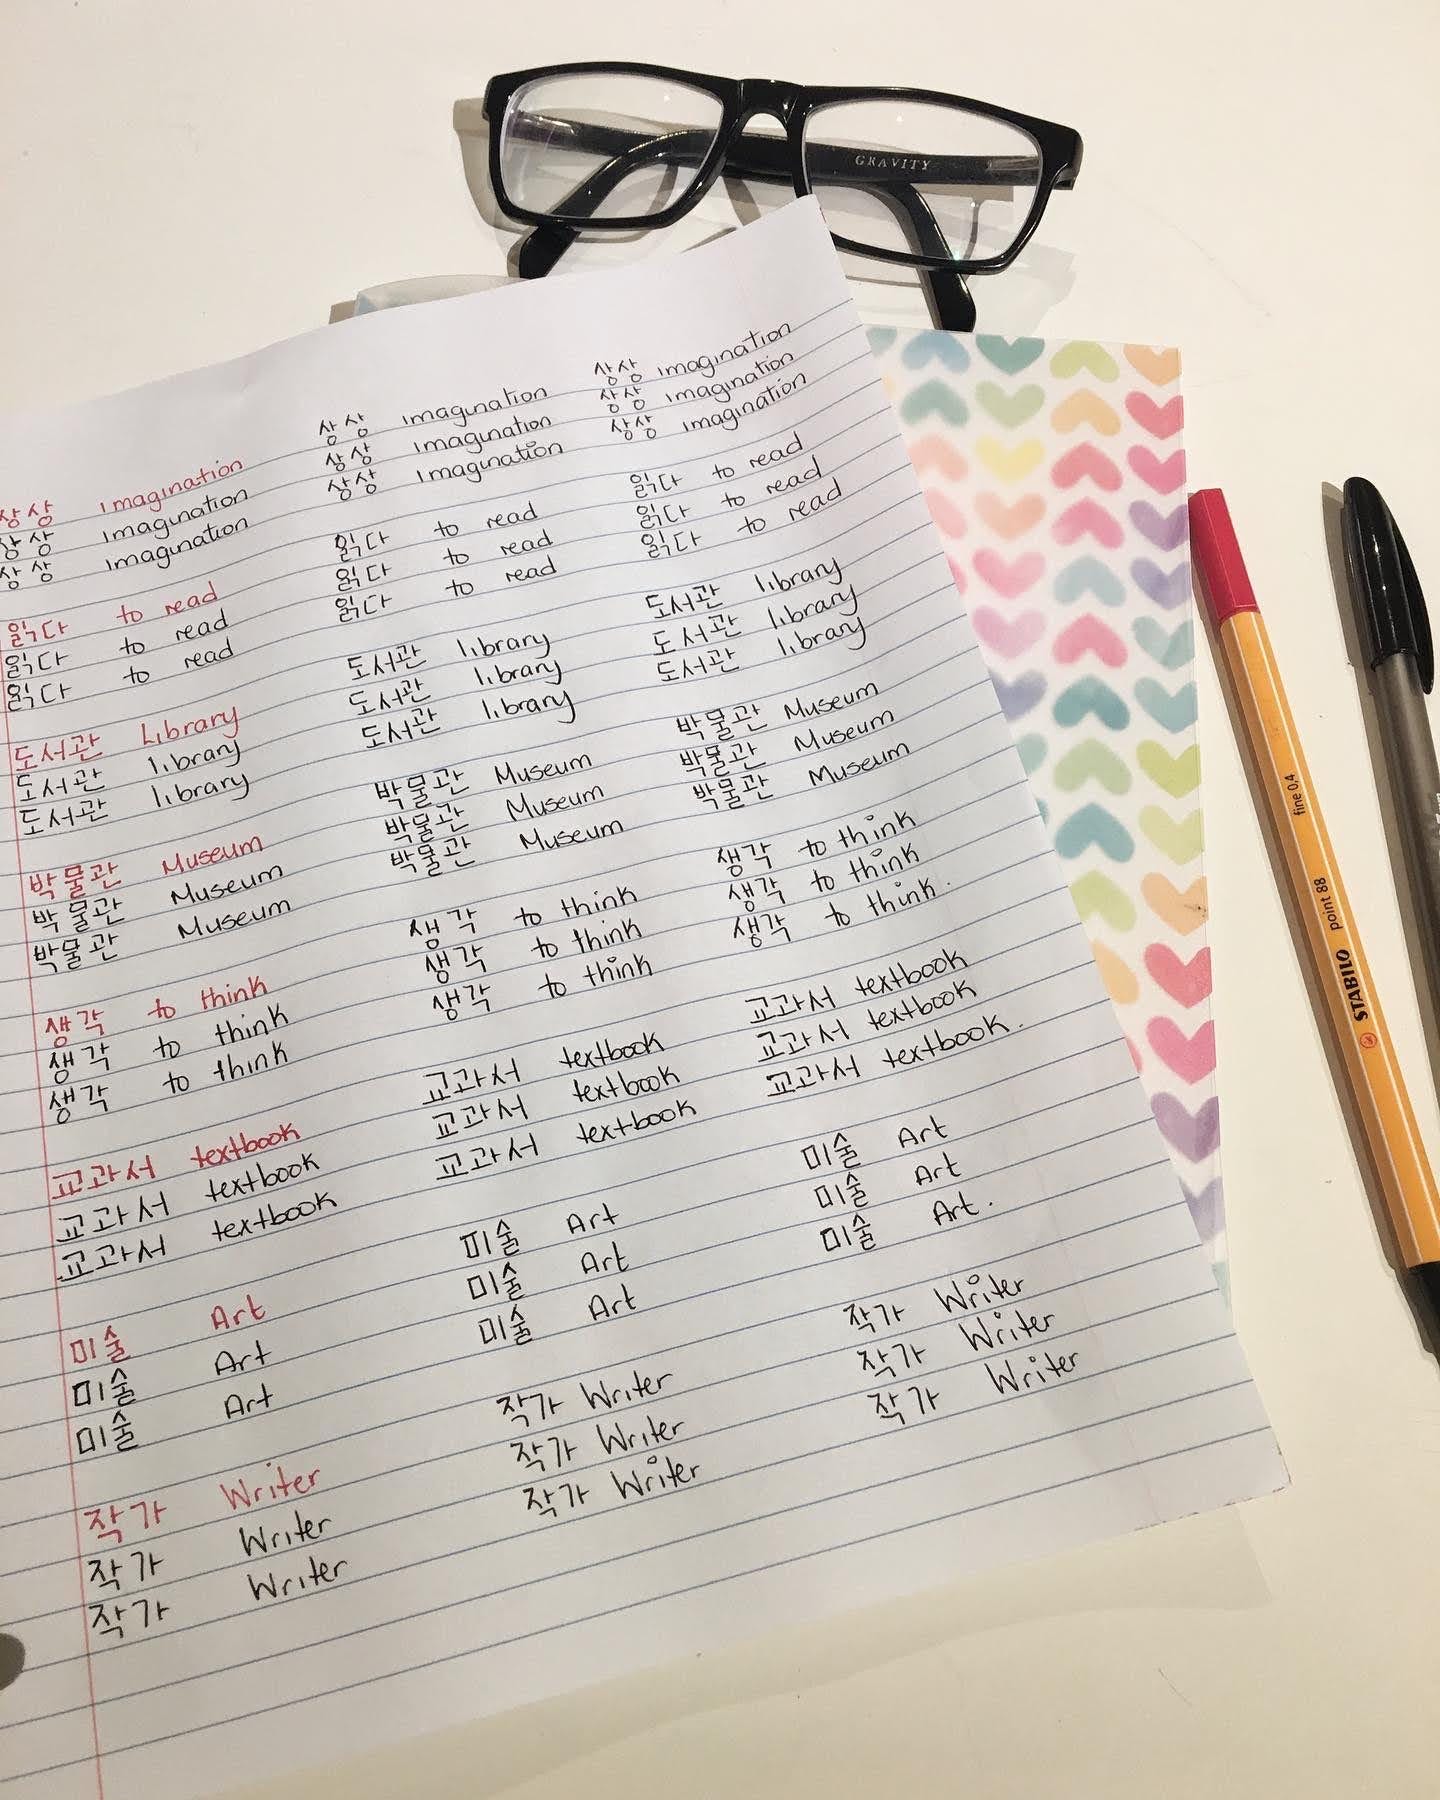 GRAVITY
상상 imagination 상상 imagination 상상 imagination
상상 imagination 상상 imagination 상상 imagination
상상 imagination 상상 imagination 상상 imagination
읽다 to read 읽다 to read 읽다 to read
읽다 to read 읽다 to read 읽다 to read
읽다 to read 읽다 to read 읽다 to read
도서관 Library 도서관 library 도서관 library
도서관 library 도서관 library 도서관 library
도서관 library 도서관 library 도서관 library
박물관 Museum 박물관 Museum 박물관 Museum
박물관 Museum 박물관 Museum 박물관 Museum
박물관 Museum 박물관 Museum 박물관 Museum
생각 to think 생각 to think 생각 to think
생각 to think 생각 to think 생각 to think
생각 to think 생각 to think 생각 to think.
교과서 textbook 교과서 textbook 교과서 textbook
교과서 textbook 교과서 textbook 교과서 textbook
교과서 textbook 교과서 textbook 교과서 textbook.
미술 Art 미술 Art 미술 Art
미술 Art 미술 Art 미술 Art
미술 Art 미술 Art 미술 Art.
작가 Writer 작가 Writer 작가 Writer
작가 Writer 작가 Writer 작가 Writer
작가 Writer 작가 Writer 작가 Writer
STABILO point 88 fine 0,4